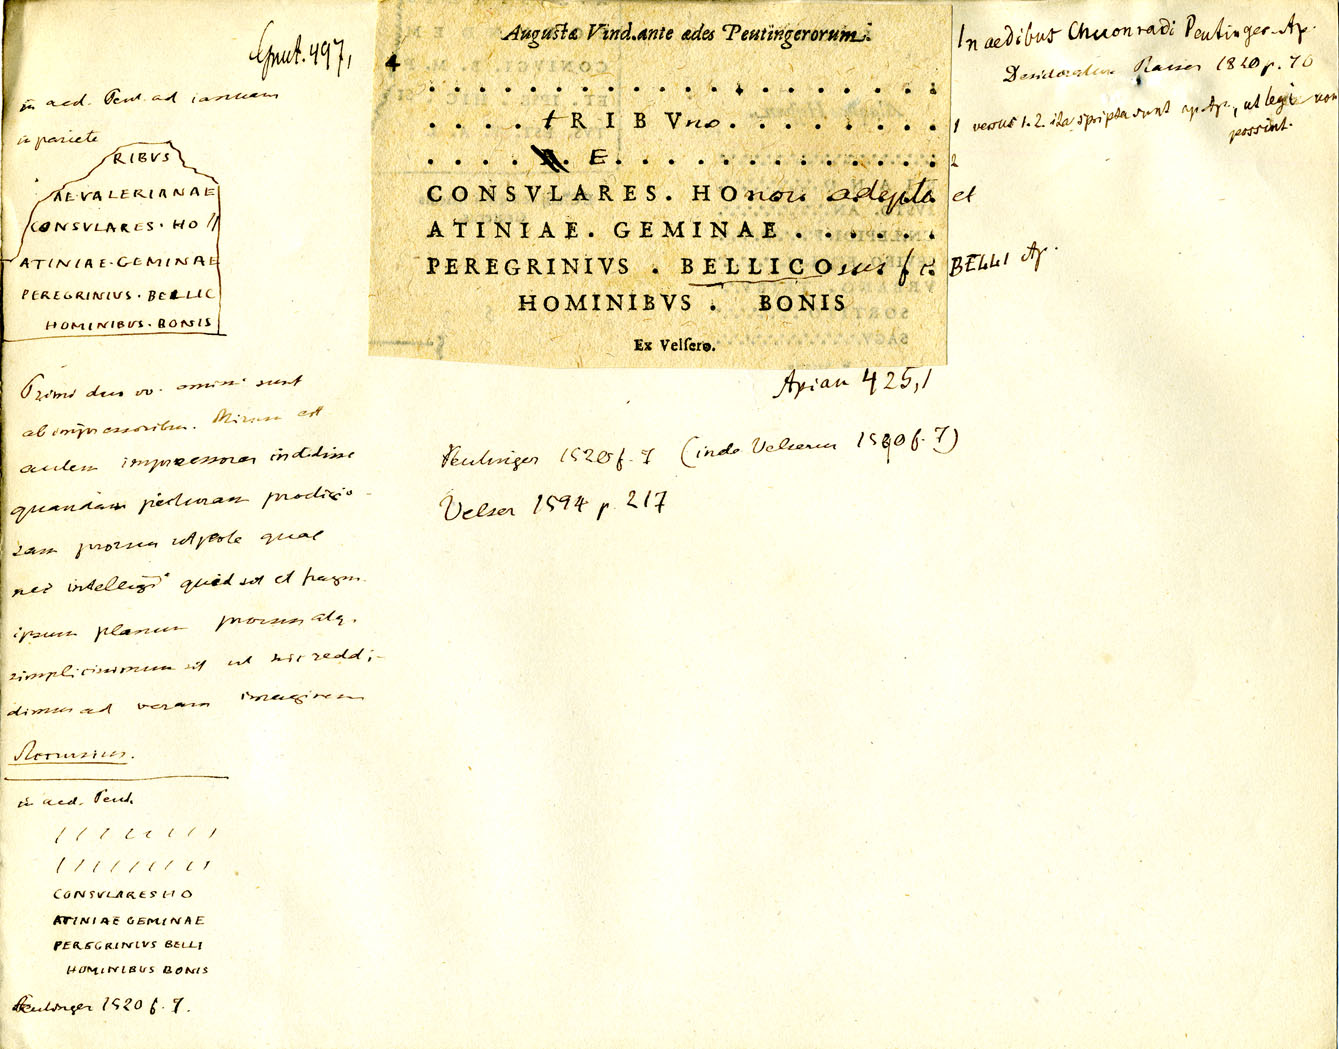 Grut. 497,
in aed. Peut. ad ianuam
in pariete
RIBVS
AE VALERIANAE
CONSVLARES · HO //
ATINIAE · GEMINAE
PEREGRINIVS · BELLIC
HOMINIBVS · BONIS
Primi duo vv. omissi sunt
ab impressoribus. Mirum est
autem impressores indidisse
quandam picturam prodigio-
sam prorsus utpote quae
nec intellegi quid sit et fragm.
ipsum planum prorsus atq.
simplicissimum sit ut hic reddi-
dimus ad veram imaginem
Accursius.
in aed. Peut.
/ / / / / / / / /
/ / / / / / / / /
CONSVLARES HO
ATINIAE GEMINAE
PEREGRINIVS BELLI
HOMINIBVS BONIS
Peutinger 1520 f. 7.
Augustæ Vind. ante ædes Peutingerorum.
4
. . . . . . . . . . . . . . . . . .
. . . . tRIBVno . . . . . . . . .
. . . . . E . . . . . . . . . . . .
CONSVLARES. HOnores adepta
ATINIAE. GEMINAE . . . . . .
PEREGRINIVS . BELLICOsus f c.
HOMINIBVS . BONIS
Ex Velsero.
Apian 425,1
Peutinger 1520 f. 7 (inde Velserus 1590 f. 7)
Velser 1594 p. 217
In aedibus Chuonradi Peutinger Ap.
Desideratur Raiser 1820 p. 70
1 versus 1. 2. ita scripta sunt ap. Ap., ut legi non
possint.
2
et
BELLI Ap.